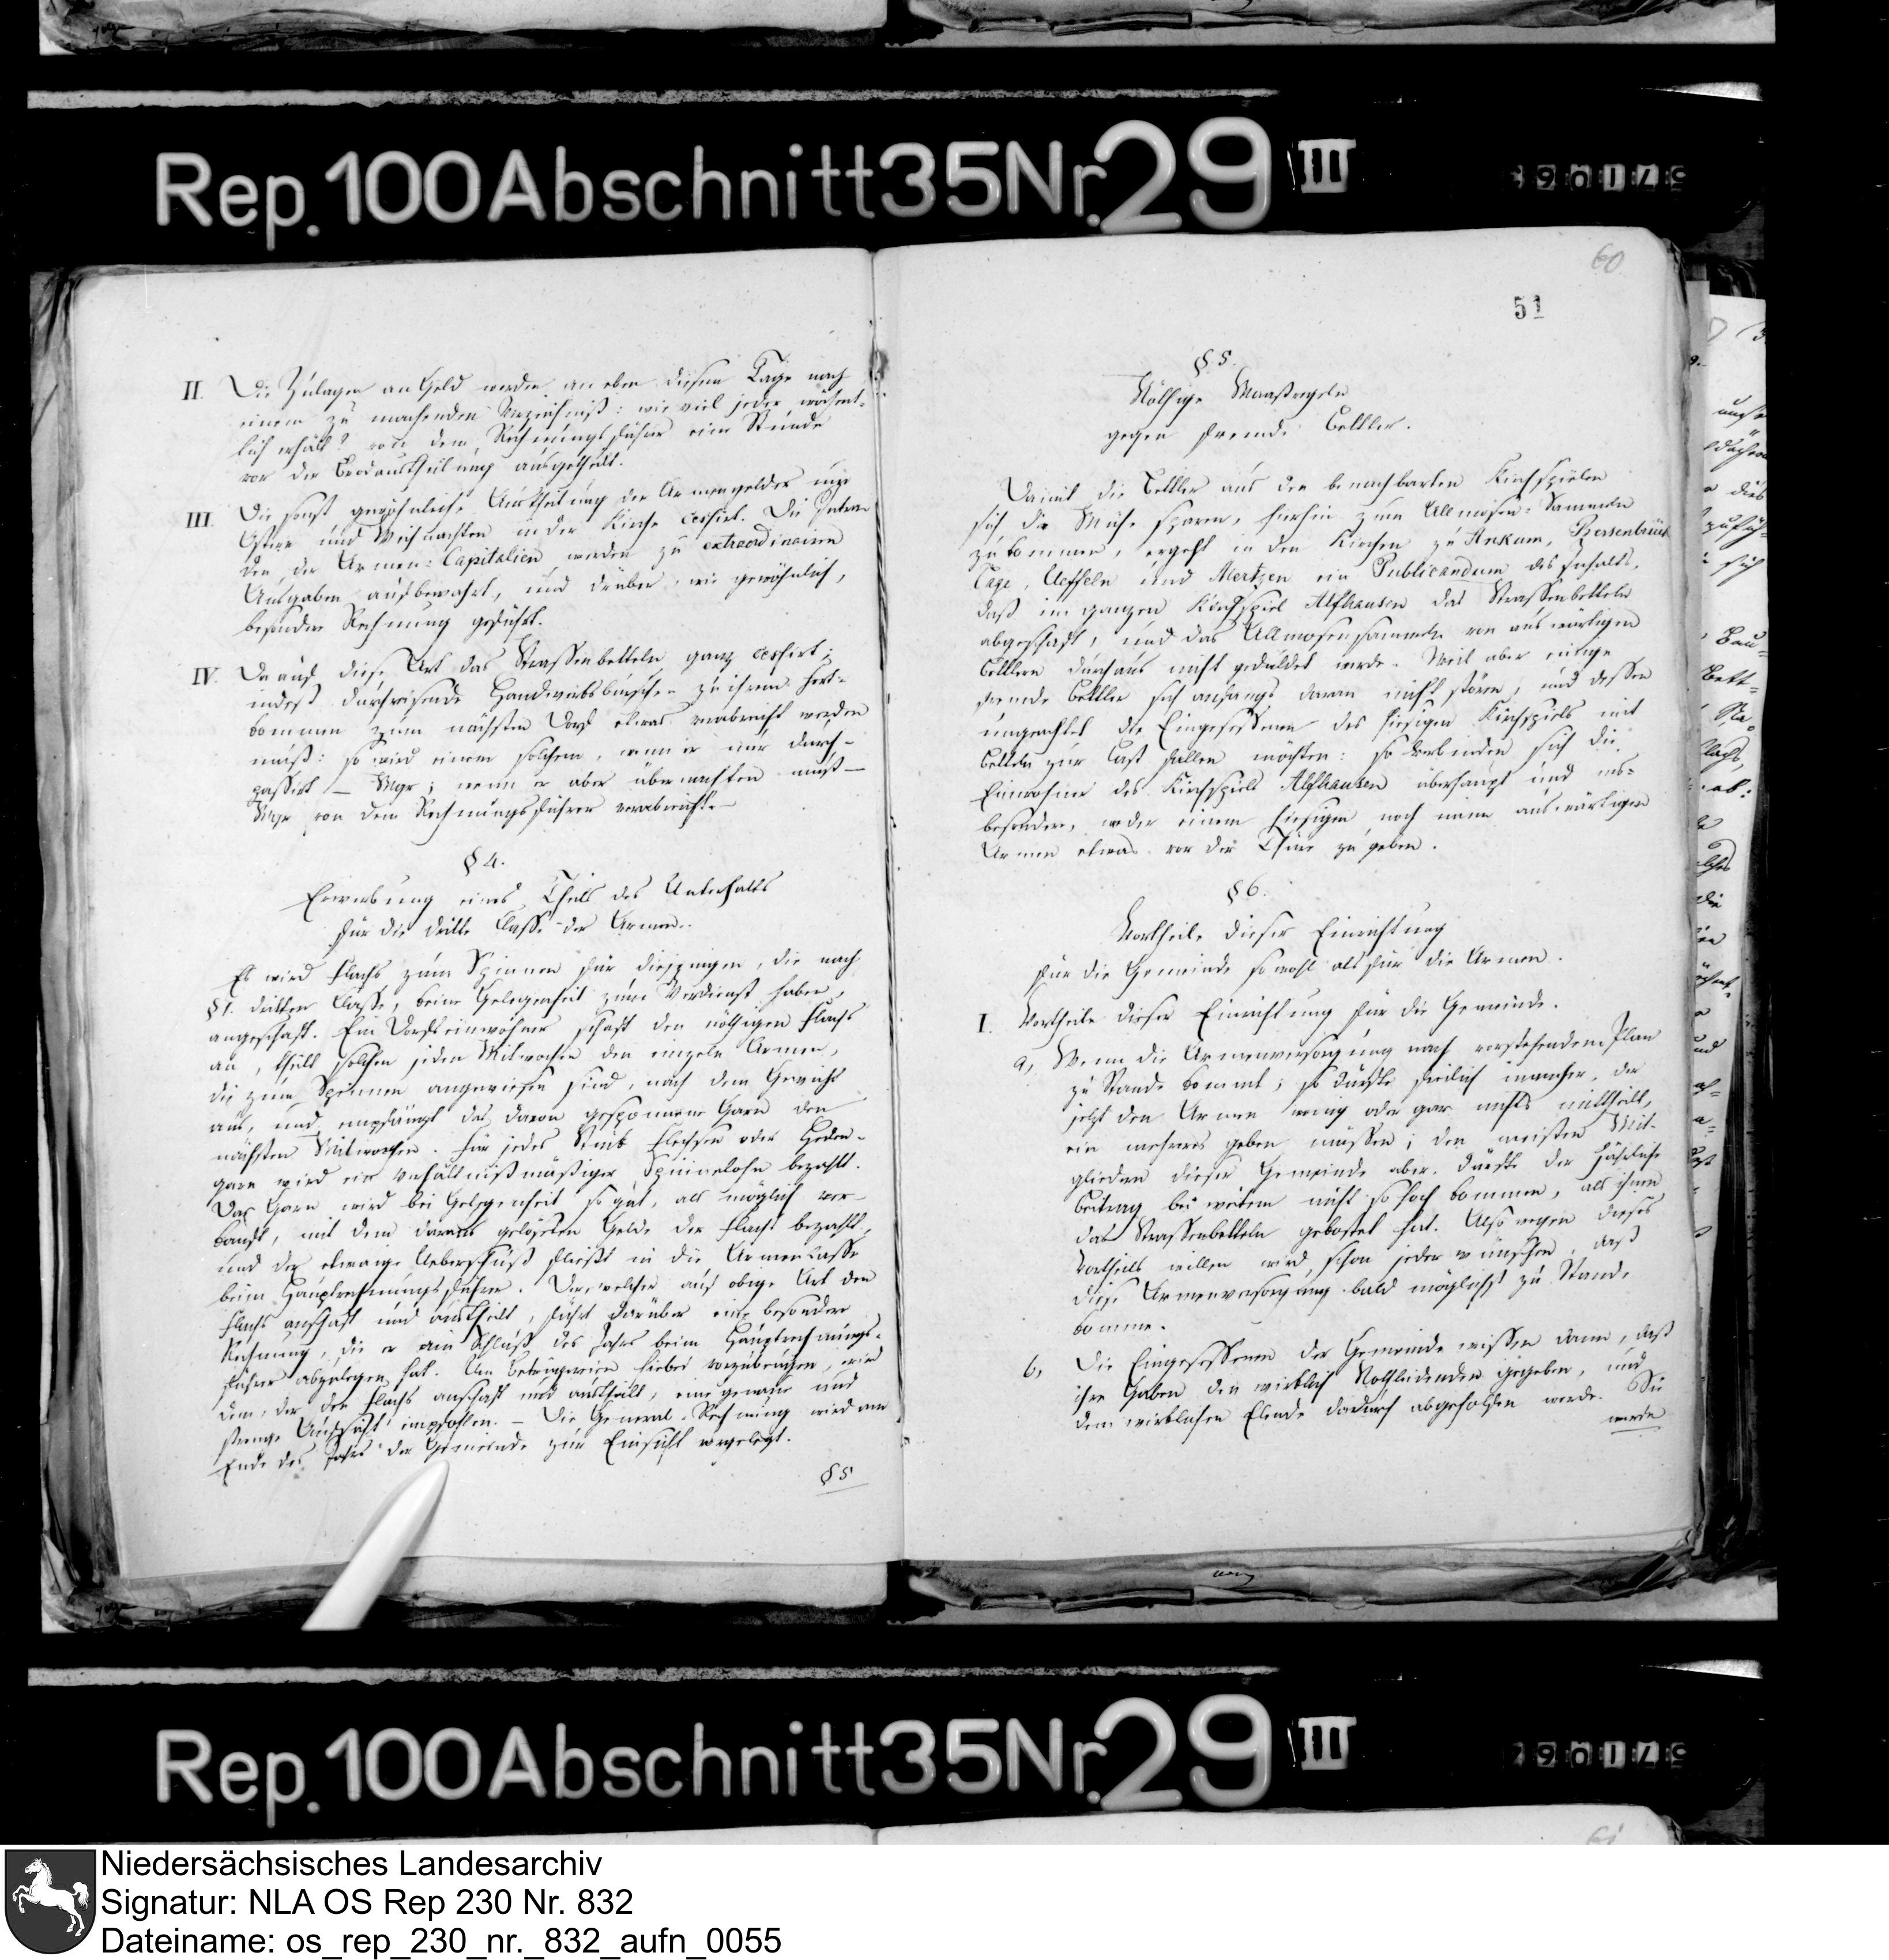 Rep. 100 Abschnitt 35 Nr. 29 III
60
51
II. Die Zulagen an Geld werden an eben diesem Tage nach
einem zu machenden Verzeichniß: wie viel jeder wöchent-
lich erhält? von dem Rechnungsführer eine Stunde
vor der Brodaustheilung ausgetheilt.
III. Die sonst gewöhnliche Austheilung der Armengelder auf
Ostern und Weihnachten in der Kirche cessirt. Die
der Armen-Capitalien werden zu extraordinairen
Ausgaben aufbewahrt, und drüber, wie gewöhnlich,
besondere Rechnung geführt.
IV. Da auf diese Art das Strassenbetteln ganz cessirt;
indeß durchreisende Handwerksburschen zu ihrem Fort-
kommen zum nächsten Dorf etwas verabreicht werden
muß: so wird einem solchem, wenn er nur durch-
passirt — Mgr; wenn er aber übernachten muß —
Mgr von dem Rechnungsführer verabreicht.
§ 4.
Erwerbung eines Theils des Unterhalts
für die dritte Classe der Armen.
Es wird Flachs zum Spinnen für diejenigen, die nach
§ 1. dritter Classe, keine Gelegenheit zum Verdienst haben,
angeschaft. Ein Dorfseinwohner schaft den nöthigen Flachs
an, theilt solchen jeden Mitwochen den einzeln Armen,
die zum Spinnen angewiesen sind, nach dem Gewicht
aus, und empfängt das davon gesponnene Garn den
nächsten Mitwochen. Für jedes Stück Flechsen oder Heden-
garn wird ein verhältnißmäßiger Spinnelohn bezahlt.
Das Garn wird bei Gelegenheit so gut, als möglich ver-
kauft, mit dem daraus gelöseten Gelde der Flachs bezahlt,
und der etwaige Ueberschuß fließt in die Armencasse
beim Hauptrechnungsführer. Der, welcher auf obige Art den
Flachs anschaft und austheilt, führt darüber eine besondere
Rechnung, die er am Schluß des Jahrs beim Hauptrechnungs-
führer abzulegen hat. Um Betrügereien hiebei vorzubeugen, wird
dem, der den Flachs anschaft und austheilt, eine genaue und
strenge Aufsicht empfohlen. — Die General-Rechnung wird am
Ende des Jahrs der Gemeinde zur Einsicht vorgelegt.
§ 5
§ 5.
Nöthige Maasregeln
gegen fremde Bettler.
Damit die Bettler aus den benachbarten Kirchspielen
sich die Mühe sparen, hierhin zum Allmosen-Sammeln
zu kommen, ergeht in den Kirchen zu Ankum, Bersenbrück
Cage, Ueffeln und Mertzen ein Publicandum des Inhalts,
daß im ganzen Kirchspiel Alfhausen das Strassenbetteln
abgeschaft, und das Allmosensammeln von auswärtigen
Bettlern durchaus nicht geduldet werde. Weil aber einige
fremde Bettler sich anfangs daran nicht stören, und dessen
ungeachtet die Eingesessenen des hiesigen Kirchspiels mit
Betteln zur Last fallen möchten: so verbinden sich die
Einwohner des Kirchspiels Alfhausen überhaupt und ins-
besondere, weder einem hiesigen noch einem auswärtigen
Armen etwas vor der Thüre zu geben.
§ 6.
Vortheile dieser Einrichtung
für die Gemeinde sowohl als für die Armen.
I. Vortheile dieser Einrichtung für die Gemeinde.
a, Wenn die Armenversorgung nach vorstehendem Plan
zu Stande kommt; so dürfte freilich mancher, der
jetzt den Armen wenig oder gar nichts mittheilt,
ein mehreres geben müssen; den meisten Mit-
gliedern dieser Gemeinde aber dürfte der jährliche
Beitrag bei weitem nicht so hoch kommen, als ihnen
das Strassenbetteln gekostet hat. Also wegen dieses
Vortheils willen wird schon jeder wünschen, daß
diese Armenversorgung bald möglichst zu Stande
komme.
b, Die Eingesessenen der Gemeinde wissen dann, daß
ihre Gaben den wirklich Nothleidenden gegeben, und
dem wirklichen Elende dadurch abgeholfen werde. Sie
werden
Rep. 100 Abschnitt 35 Nr. 29 III
61
Niedersächsisches Landesarchiv
Signatur: NLA OS Rep 230 Nr. 832
Dateiname: os_rep_230_nr._832_aufn_0055